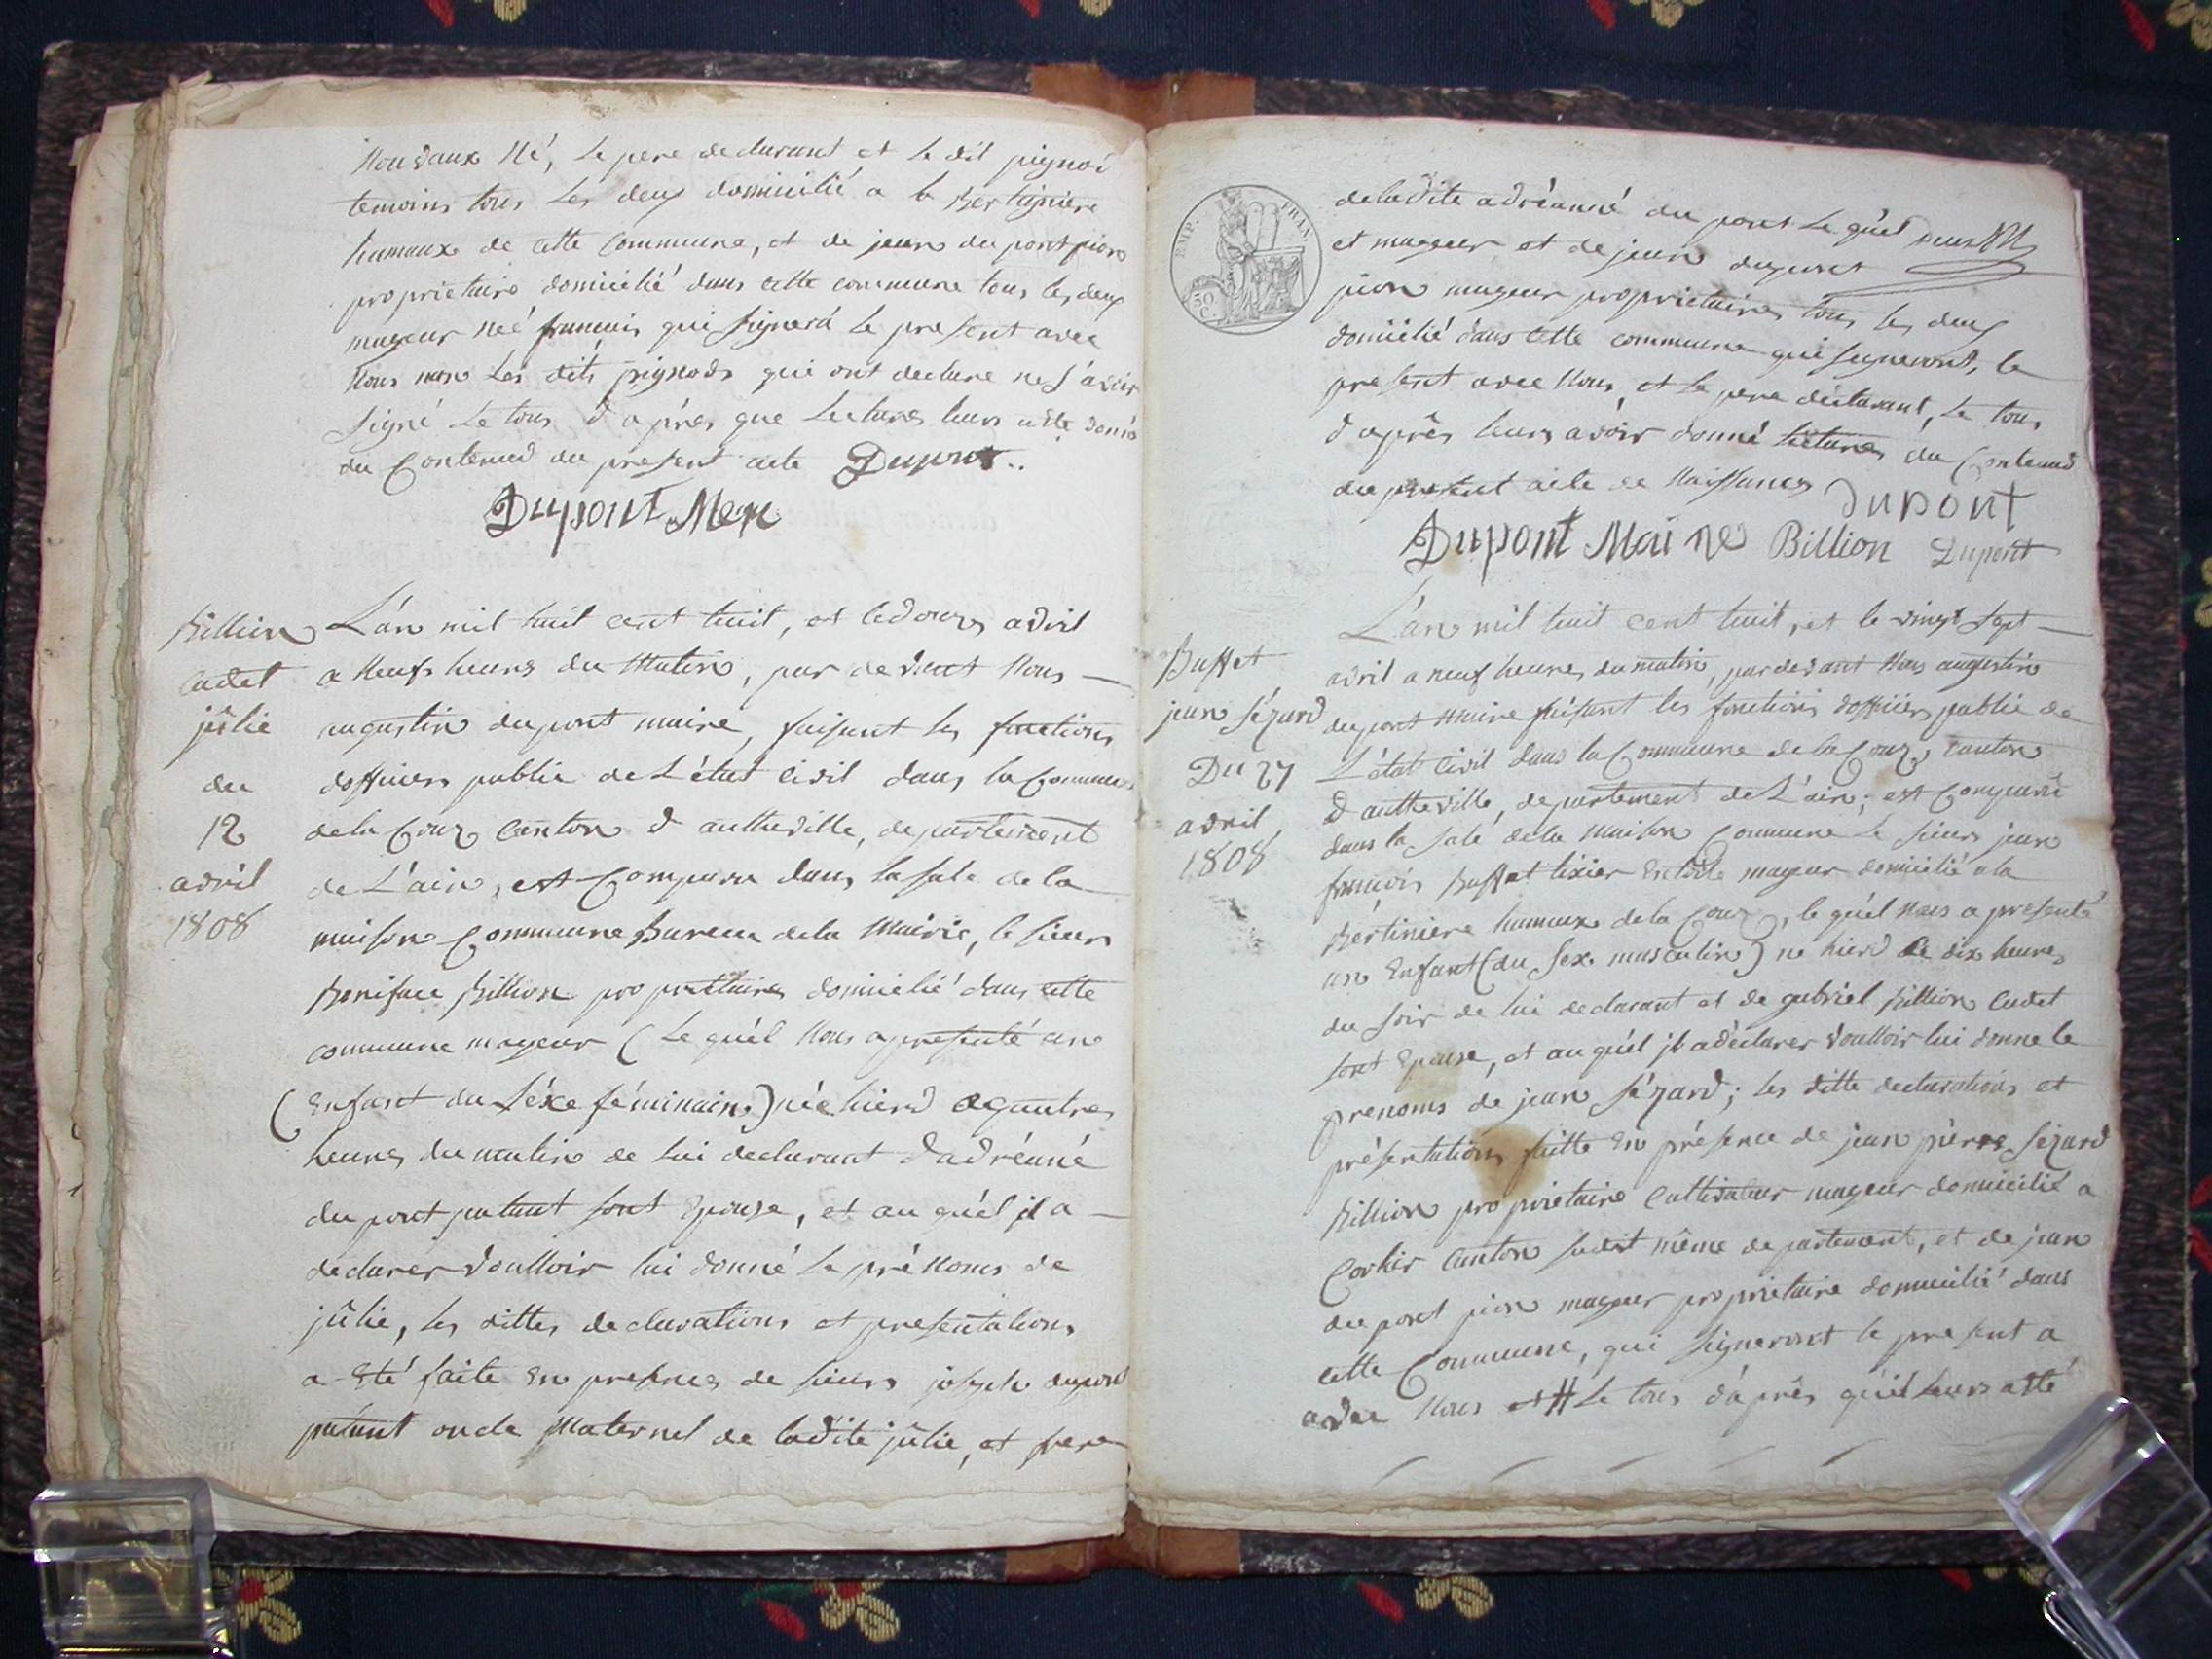 Nouvaux Né, le pere declarant et le dit pignod
temoins tous les deux domicilié a la Bertinière
hamaux de cette commune, et de jean du pont pion
proprietaire domicilié dans cette commune tous les deux
mageur né français qui signera le present avec
Nous non les dits pignods qui ont declare ne savoir
signé le tous d'après que lectures leurs a été donné
du Contenud du present acte Dupont..
Dupont Mere
Billion
cadet
jûlie
du
12
avril
1808
L'an mil huit cent huit, et le douze avril
a neufs heures du Matin, par devant Nous
augustin du pont maire, faisant les fonctions
dofficiers public de L'état civil dans la Commune
de la Couz canton d'autheville, departement
de L'ain, est Comparu dans la sale de la
maison Commune Bureau de la Mairie, le sieur
Boniface Billion propriétaires domicilié dans cette
commune mageur (Le quél Nous a presenté une
(Enfant du séxe féminain) née hierd a quatres
heures du matin de lui declarant d'adréanné
du pont patant sont Epouse, et au quél il a
declarer voulloir lui donné le pré Noms de
jûlie, les dittes declarations et presentations
a été faite En presences de sieurs joseph dupont
patant oncle Maternel de ladite jûlie, et frere
EMP. FRAN.
50 C.
de ladite adréanné du pont Le quél
et mageur et de jean dupont
pion mageur proprietaires tous les deux
domicilié dans cette commune qui signeront, le
present avec Nous, et le pere déclarant, Le tous
d'après leurs avoir donné lectures du Contenud
du present acte de Naissances Dupont
Dupont Maire Billion Dupont
Buffet
jean Sézard
Du 27
avril
1808
L'an mil huit cent huit, et le vingt sept
avril a neuf heures du matin, par devant Nous augustin
dupont Maire faisant les fonctions dofficiers public de
L'état Civil dans la Commune de la Couz canton
d'autheville, departement de L'ain; est Comparu
dans la sale de la Maison Commune le sieurs jean
francois Buffet tixier En toile mageur domicilié a la
Bértiniere hamaux de la Couz, le quél Nous a presenté
un Enfant (du sex masculin) né hierd a dix heures
du soir de lui declarant et de gabriel Billion Cadet
sont Epouse, et au quél il a déclarer voulloir lui donne le
prenoms de jean Sézard; les ditte declarations et
présentations faitte En présence de jean pierre Sezard
Billion propriétaire Cultivateur mageur domicilié a
Corlier Canton sudit même departement, et de jean
du pont pion mageur propriétaire domicilié dans
cette Commune, qui signeront le present a
avec Nous et # Le tous d'après quél leurs a été